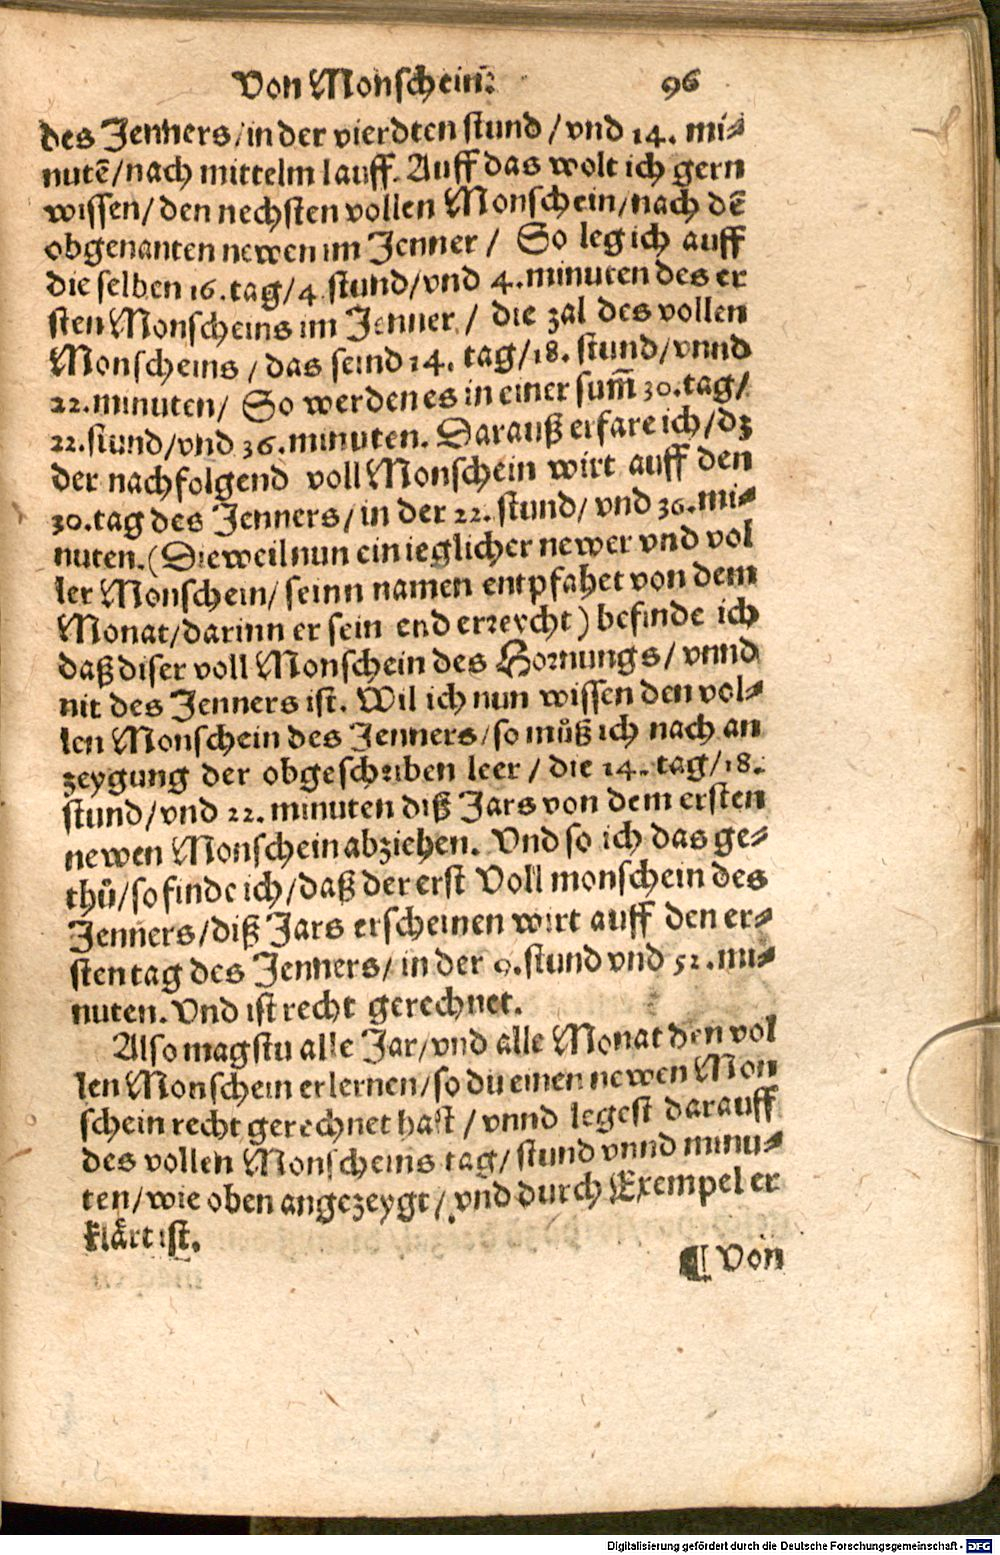 Von Monschein. 96
des Jenners/in der vierdten stund/vnd 14. mi-
nutē/nach mittelm lauff. Auff das wolt ich gern
wissen/den nechsten vollen Monschein/nach dē
obgenanten newen im Jenner/ So leg ich auff
die selben 16.tag/4 stund/vnd 4.minuten des er
sten Monscheins im Jenner/ die zal des vollen
Monscheins/das seind 14. tag/18. stund/vnnd
22.minuten/ So werden es in einer sum̄ 30.tag/
22.stund/vnd 36.minuten. Darauß erfare ich/dz
der nachfolgend voll Monschein wirt auff den
30.tag des Jenners/in der 22. stund/vnd 36.mi-
nuten.(Dieweil nun ein ieglicher newer vnd vol
ler Monschein/seinn namen entpfahet von dem
Monat/darinn er sein end erreycht) befinde ich
daß diser voll Monschein des Hornungs/vnnd
nit des Jenners ist. Wil ich nun wissen den vol-
len Monschein des Jenners/so můß ich nach an
zeygung der obgeschriben leer/die 14. tag/18.
stund/vnd 22. minuten diß Jars von dem ersten
newen Monschein abziehen. Vnd so ich das ge-
thů/so finde ich/daß der erst Voll monschein des
Jenners/diß Jars erscheinen wirt auff den er-
sten tag des Jenners/in der 9.stund vnd 52.mi-
nuten. Vnd ist recht gerechnet.
Also magstu alle Jar/vnd alle Monat den vol
len Monschein erlernen/so du einen newen Mon
schein recht gerechnet hast/vnnd legest darauff
des vollen Monscheins tag/stund vnnd minu-
ten/wie oben angezeygt/vnd durch Exempel er
klårt ist.
¶ Von
Digitalisierung gefördert durch die Deutsche Forschungsgemeinschaft - DFG